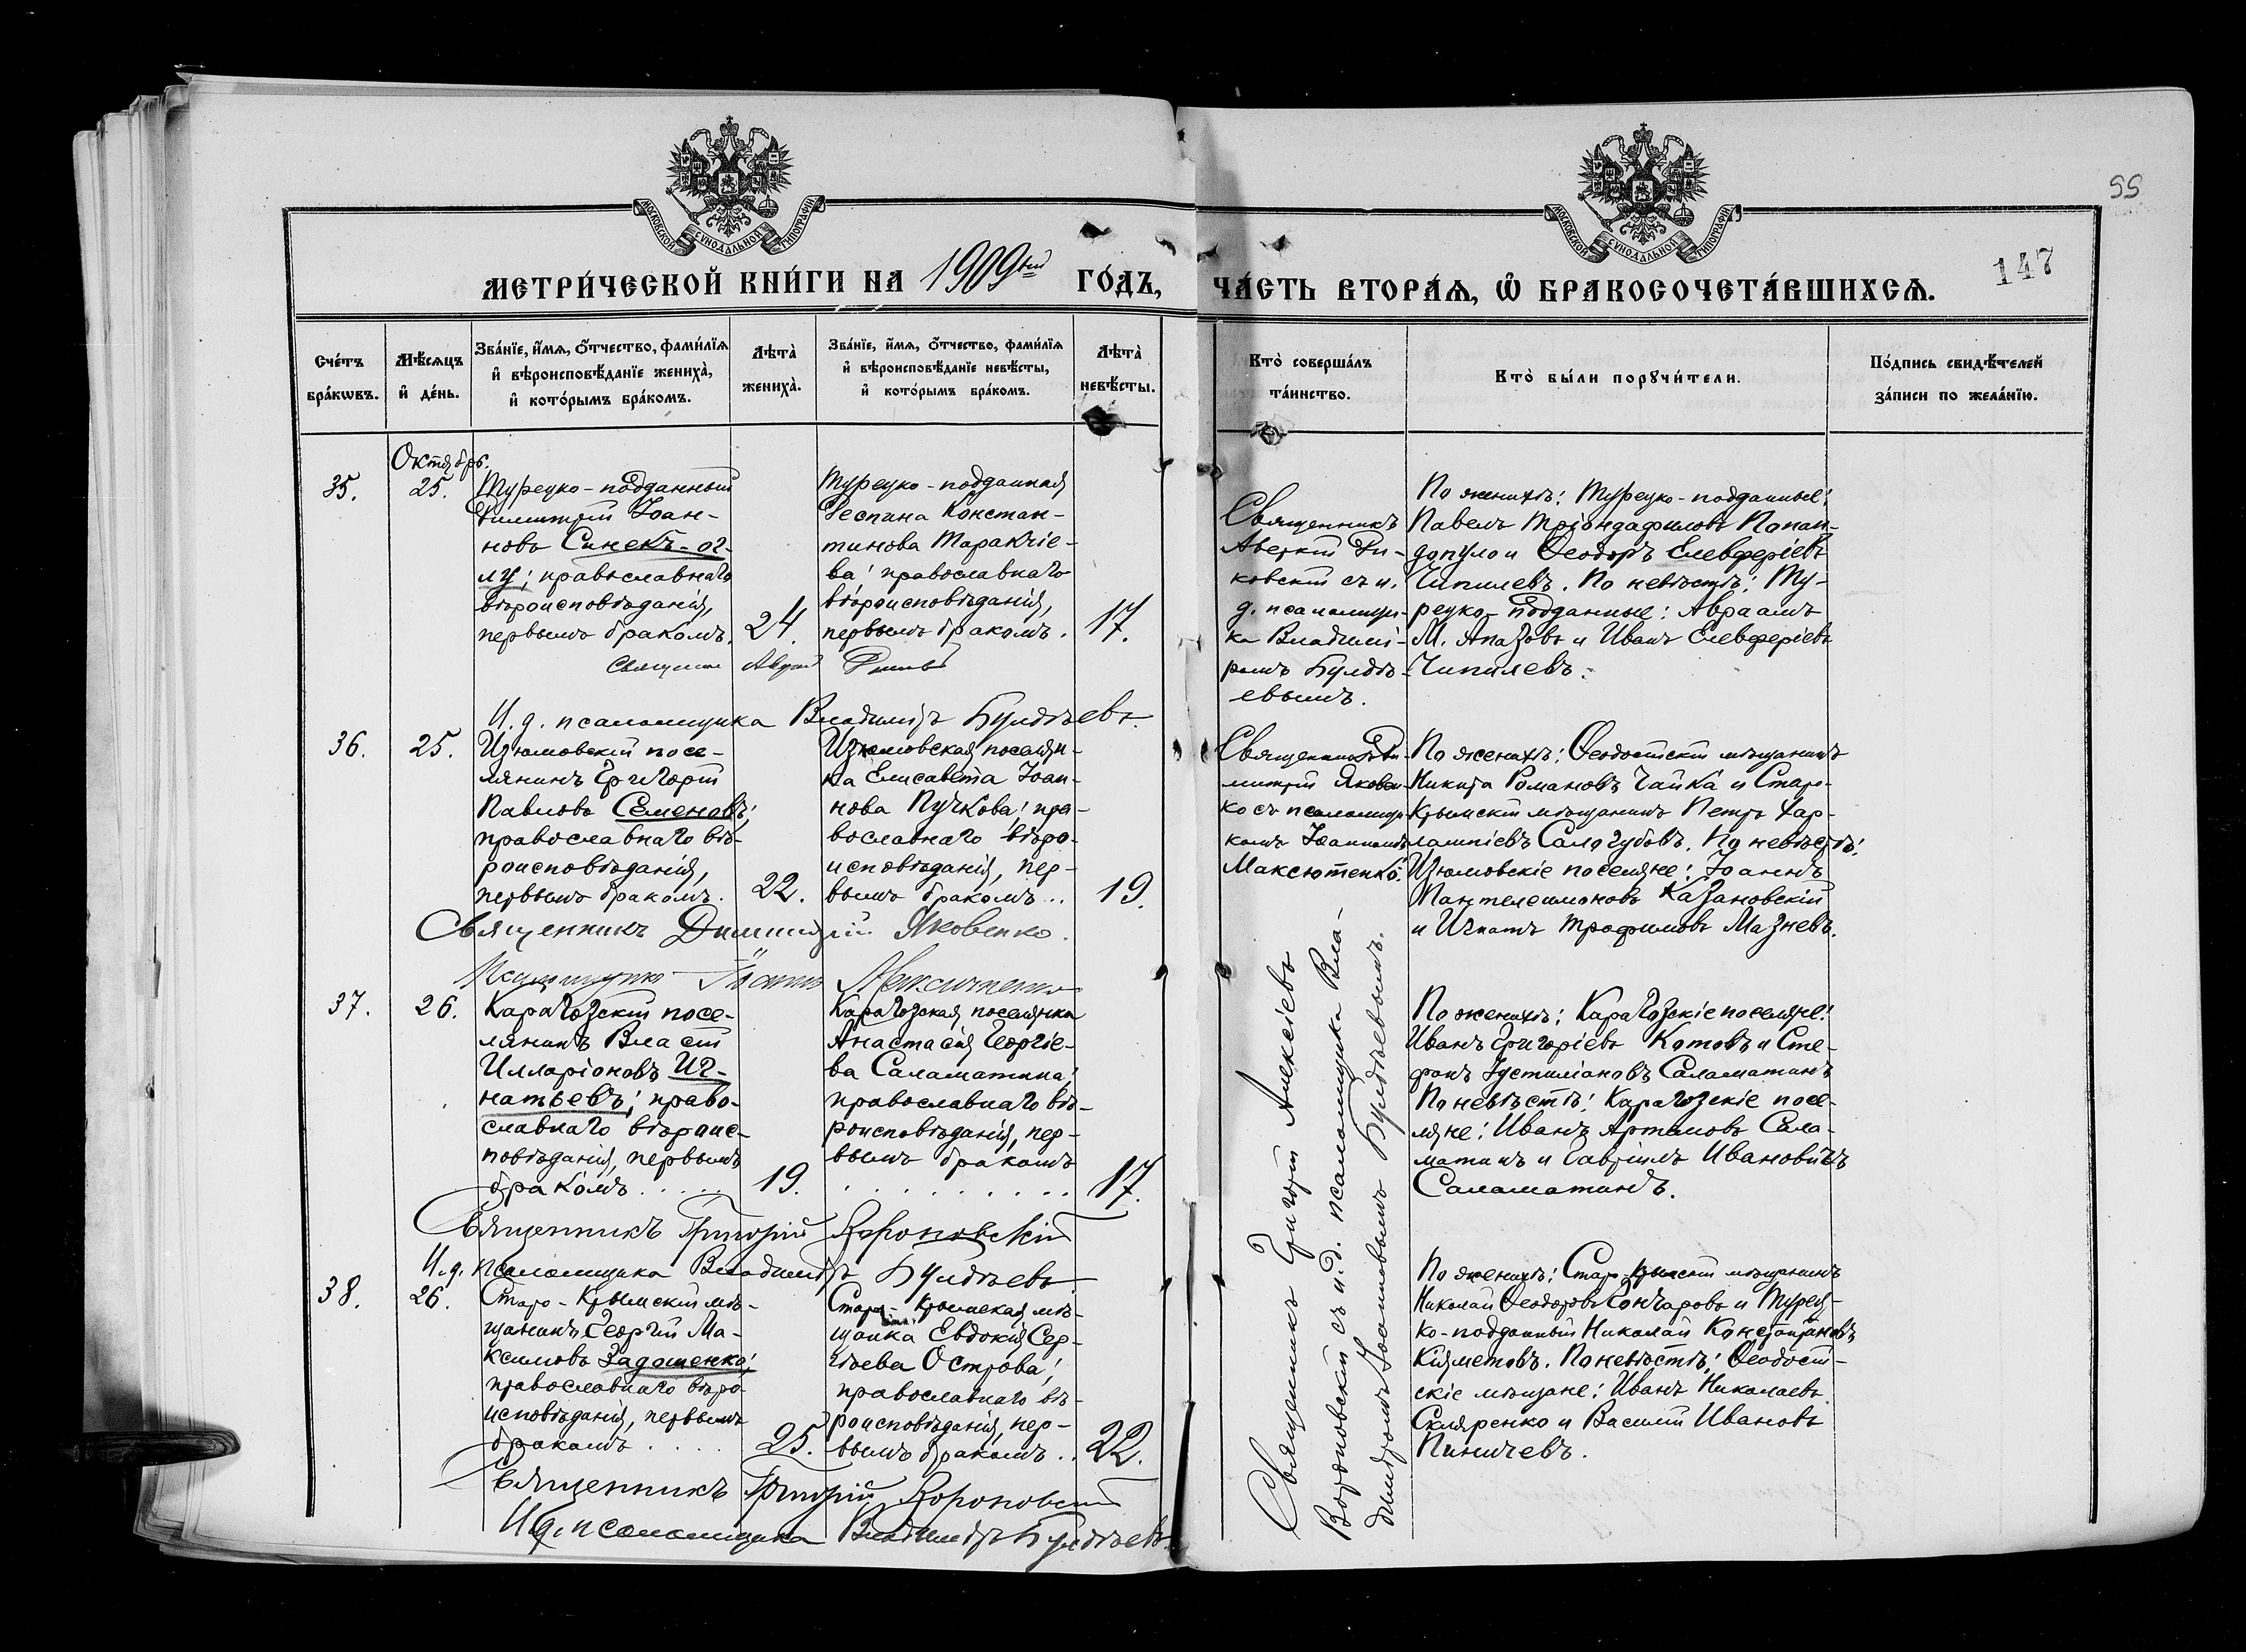 55
147
МОСКОВСКОЙ СѴНОДАЛЬНОЙ ТИПОГРАФІИ
МОСКОВСКОЙ СѴНОДАЛЬНОЙ ТИПОГРАФІИ
МЕТРИ́ЧЕСКОЙ КНИ́ГИ НА 1909ый ГО́ДЪ,
ЧА́СТЬ ВТОРА́Ѧ, Ѽ БРАКОСОЧЕТА́ВШИХСѦ.
Сче́тъ
бра́кѡвъ.
Мѣ́сяцъ
и҆ де́нь.
Зва́нїе, и҆́мѧ, ѻ҆́тчество, фами́лїѧ
и҆ вѣроисповѣ́данїе жениха̀,
и҆ кото́рымъ бра́комъ.
Лѣта̀
жениха̀.
Зва́нїе, и҆́мѧ, ѻ҆́тчество, фами́лїѧ
и҆ вѣроисповѣ́данїе невѣ́сты,
и҆ кото́рымъ бра́комъ.
Лѣта̀
невѣ́сты.
Кто̀ соверша́лъ
та́инство.
Кто̀ бы́ли порꙋчи́тели.
По́дпись свидѣ́телей
за́писи по жела́нїю.
Октябрь.
35.
25.
Турецко-подданный
Димитрій Іоан-
новъ Синекъ-ог-
лу; православнаго
вѣроисповѣданія,
первымъ бракомъ.
24.
Турецко-подданная
Деспина Констан-
тинова Таракчіе-
ва; православнаго
вѣроисповѣданія,
первымъ бракомъ.
17.
Священникъ
Аверкій Ди-
ковскій съ и.
д. псаломщи-
ка Владимі-
ромъ Булдѣ-
евымъ.
По женихѣ: Турецко-подданные:
Павелъ Тріондафиловъ Папан-
допуло и Ѳеодоръ Елевферіевъ
Чипилевъ. По невѣстѣ: Ту-
рецко-подданные: Авраамъ
М. Апазовъ и Иванъ Елевферіевъ
Чипилевъ.
И. д. псаломщика Владиміръ Булдѣевъ.
36.
25.
Изюмовскій посе-
лянинъ Григорій
Павловъ Семеновъ;
православнаго вѣ-
роисповѣданія,
первымъ бракомъ.
22.
Изюмовская поселян-
ка Елисавета Іоан-
нова Пучкова; пра-
вославнаго вѣро-
исповѣданія, пер-
вымъ бракомъ..
19.
Священникъ Ди-
митрій Яковен-
ко съ псаломщи-
комъ Іоанномъ
Максютенко.
По женихѣ: Ѳеодосійскій мѣщанинъ
Никита Романовъ Чайка и Старо-
Крымскій мѣщанинъ Петръ Хар-
лампіевъ Сологубовъ. По невѣстѣ:
Изюмовскіе поселяне: Іоаннъ
Пантелеимоновъ Казановскій
и Игнатъ Трофимовъ Мазневъ.
Священникъ Димитрій Яковенко.
Псаломщикъ Іоаннъ Максютенко
37.
26.
Карагозскій посе-
лянинъ Власій
Илларіоновъ Иг-
натьевъ; право-
славнаго вѣроис-
повѣданія, первымъ
бракомъ.....
19.
Карагозская поселянка
Анастасія Георгіе-
ва Саламатина;
православнаго вѣ-
роисповѣданія, пер-
вымъ бракомъ
17.
Священникъ Григорій Алексіевъ
Вороновскій съ и.д. псаломщика Вла-
диміромъ Іоанновымъ Булдѣевымъ.
По женихѣ: Карагозскіе поселяне:
Иванъ Григоріевъ Котовъ и Сте-
фанъ Іустиліановъ Саламатинъ
По невѣстѣ: Карагозскіе посе-
ляне: Иванъ Артамовъ Сала-
матинъ и Гавріилъ Ивановичъ
Саламатинъ.
Священникъ Григорій Вороновскій
И.д. псаломщика Владиміръ Булдѣевъ
38.
26.
Старо-Крымскій мѣ-
щанинъ Георгій Ма-
ксимовъ Задошенко;
православнаго вѣро-
исповѣданія, первымъ
бракомъ....
25.
Старо-Крымская мѣ-
щанка Евдокія Сер-
гѣева Острова;
православнаго вѣ-
роисповѣданія, пер-
вымъ бракомъ..
22.
По женихѣ: Старо-Крымскій мѣщанинъ
Николай Ѳеодоровъ Гончаровъ и Турец-
ко-подданный Николай Константиновъ
Кіяметовъ. По невѣстѣ: Ѳеодосій-
скіе мѣщане: Иванъ Николаевъ
Скляренко и Василій Ивановъ
Пиничевъ.
Священникъ Григорій Вороновскій
И.д. псаломщика Владиміръ Булдѣевъ.